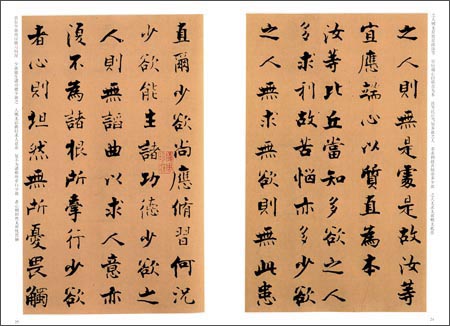 之人則無是處是故汝等
宜應端心以質直為本
汝等比丘當知多欲之人
多求利故苦惱亦多少欲
之人無求無欲則無此患
直爾少欲尚應脩習何況
少欲能生諸功德少欲之
人則無諂曲以求人意亦
復不為諸根所牽行少欲
者心則坦然無所憂畏觸